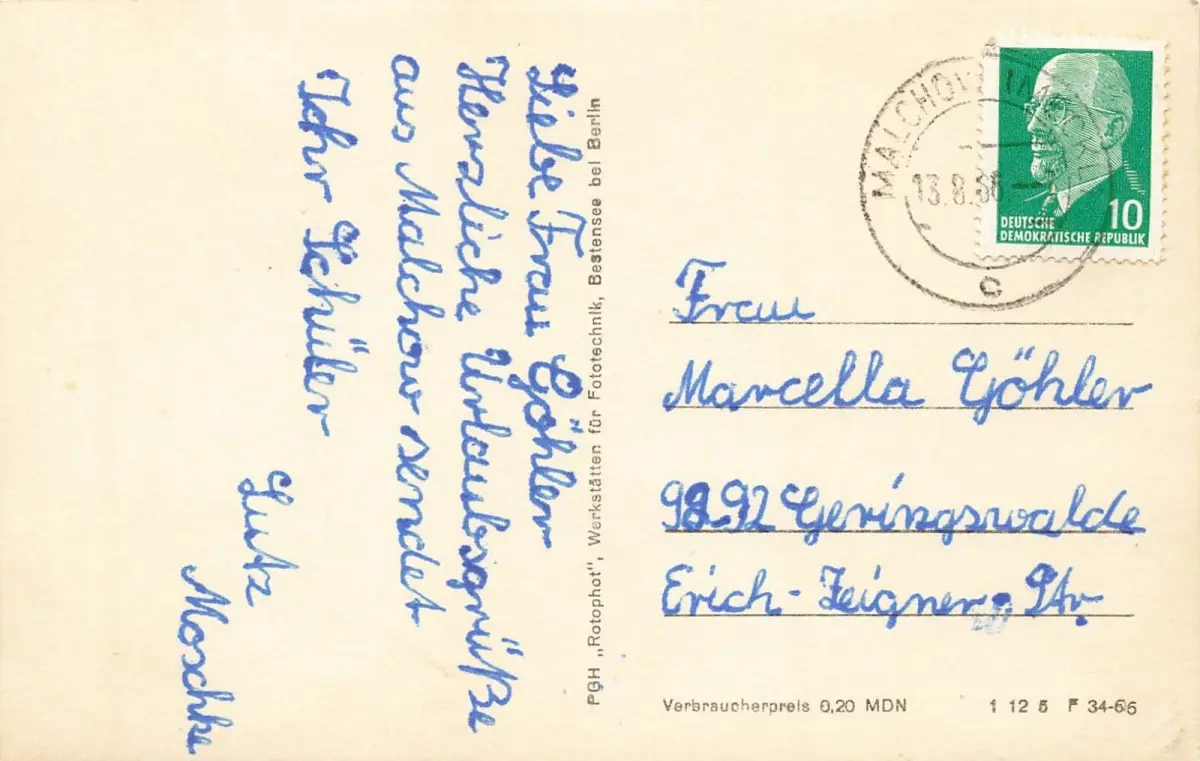 Liebe Frau Göhler
Herzliche Urlaubsgrüße
aus Malchow sendet
Ihr Schüler
Lutz
Moschke
PGH „Rotophot", Werkstätten für Fototechnik, Bestensee bei Berlin
MALCHOW (MECKL)
13.8.66
c
10
DEUTSCHE
DEMOKRATISCHE REPUBLIK
Frau
Marcella Göhler
9292 Geringswalde
Erich-Zeigner-Str
Verbraucherpreis 0,20 MDN 1 12 5 F 34-66